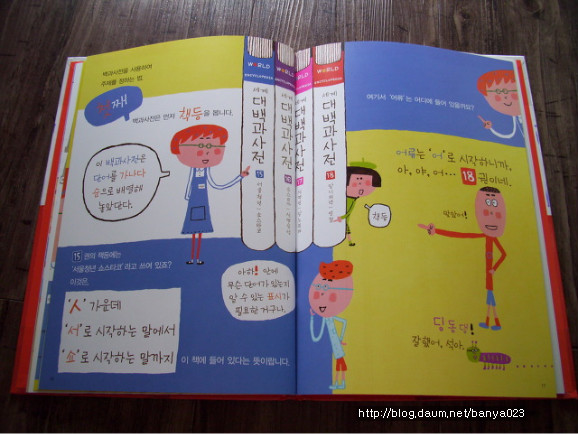 백과사전을 사용하여
주제를 정하는 법.
짜!
백과사전은 먼저 책등을 봅니다.
이 백과사전은
단어를 가나다
순으로 배열해
놓았단다.
15 권의 책등에는
이라고 쓰여 있죠?
이것은,
'ㅅ' 가운데
'서'로 시작하는 말에서
'쇼'로 시작하는 말까지
이 책에 들어 있다는 뜻이랍니다.
WORLD
ENCYCLOPEDIA
세계
대백과사전
15
WORLD
세계
대백과사전
WORLD
세계
대백과사전
17
WORLD
ENCYCLOPEDIA
세계
대백과사전
18
아하! 안에
무슨 단어가 있는지
알 수 있는 표시가
필요한 거구나.
여기서 '어류'는 어디에 들어 있을까요?
어류는 '어'로 시작하니까,
아, 야, 어... 18 권이네.
책등
맞았어!
딩동댕!
잘했어, 석아.
http://blog.daum.net/banya023